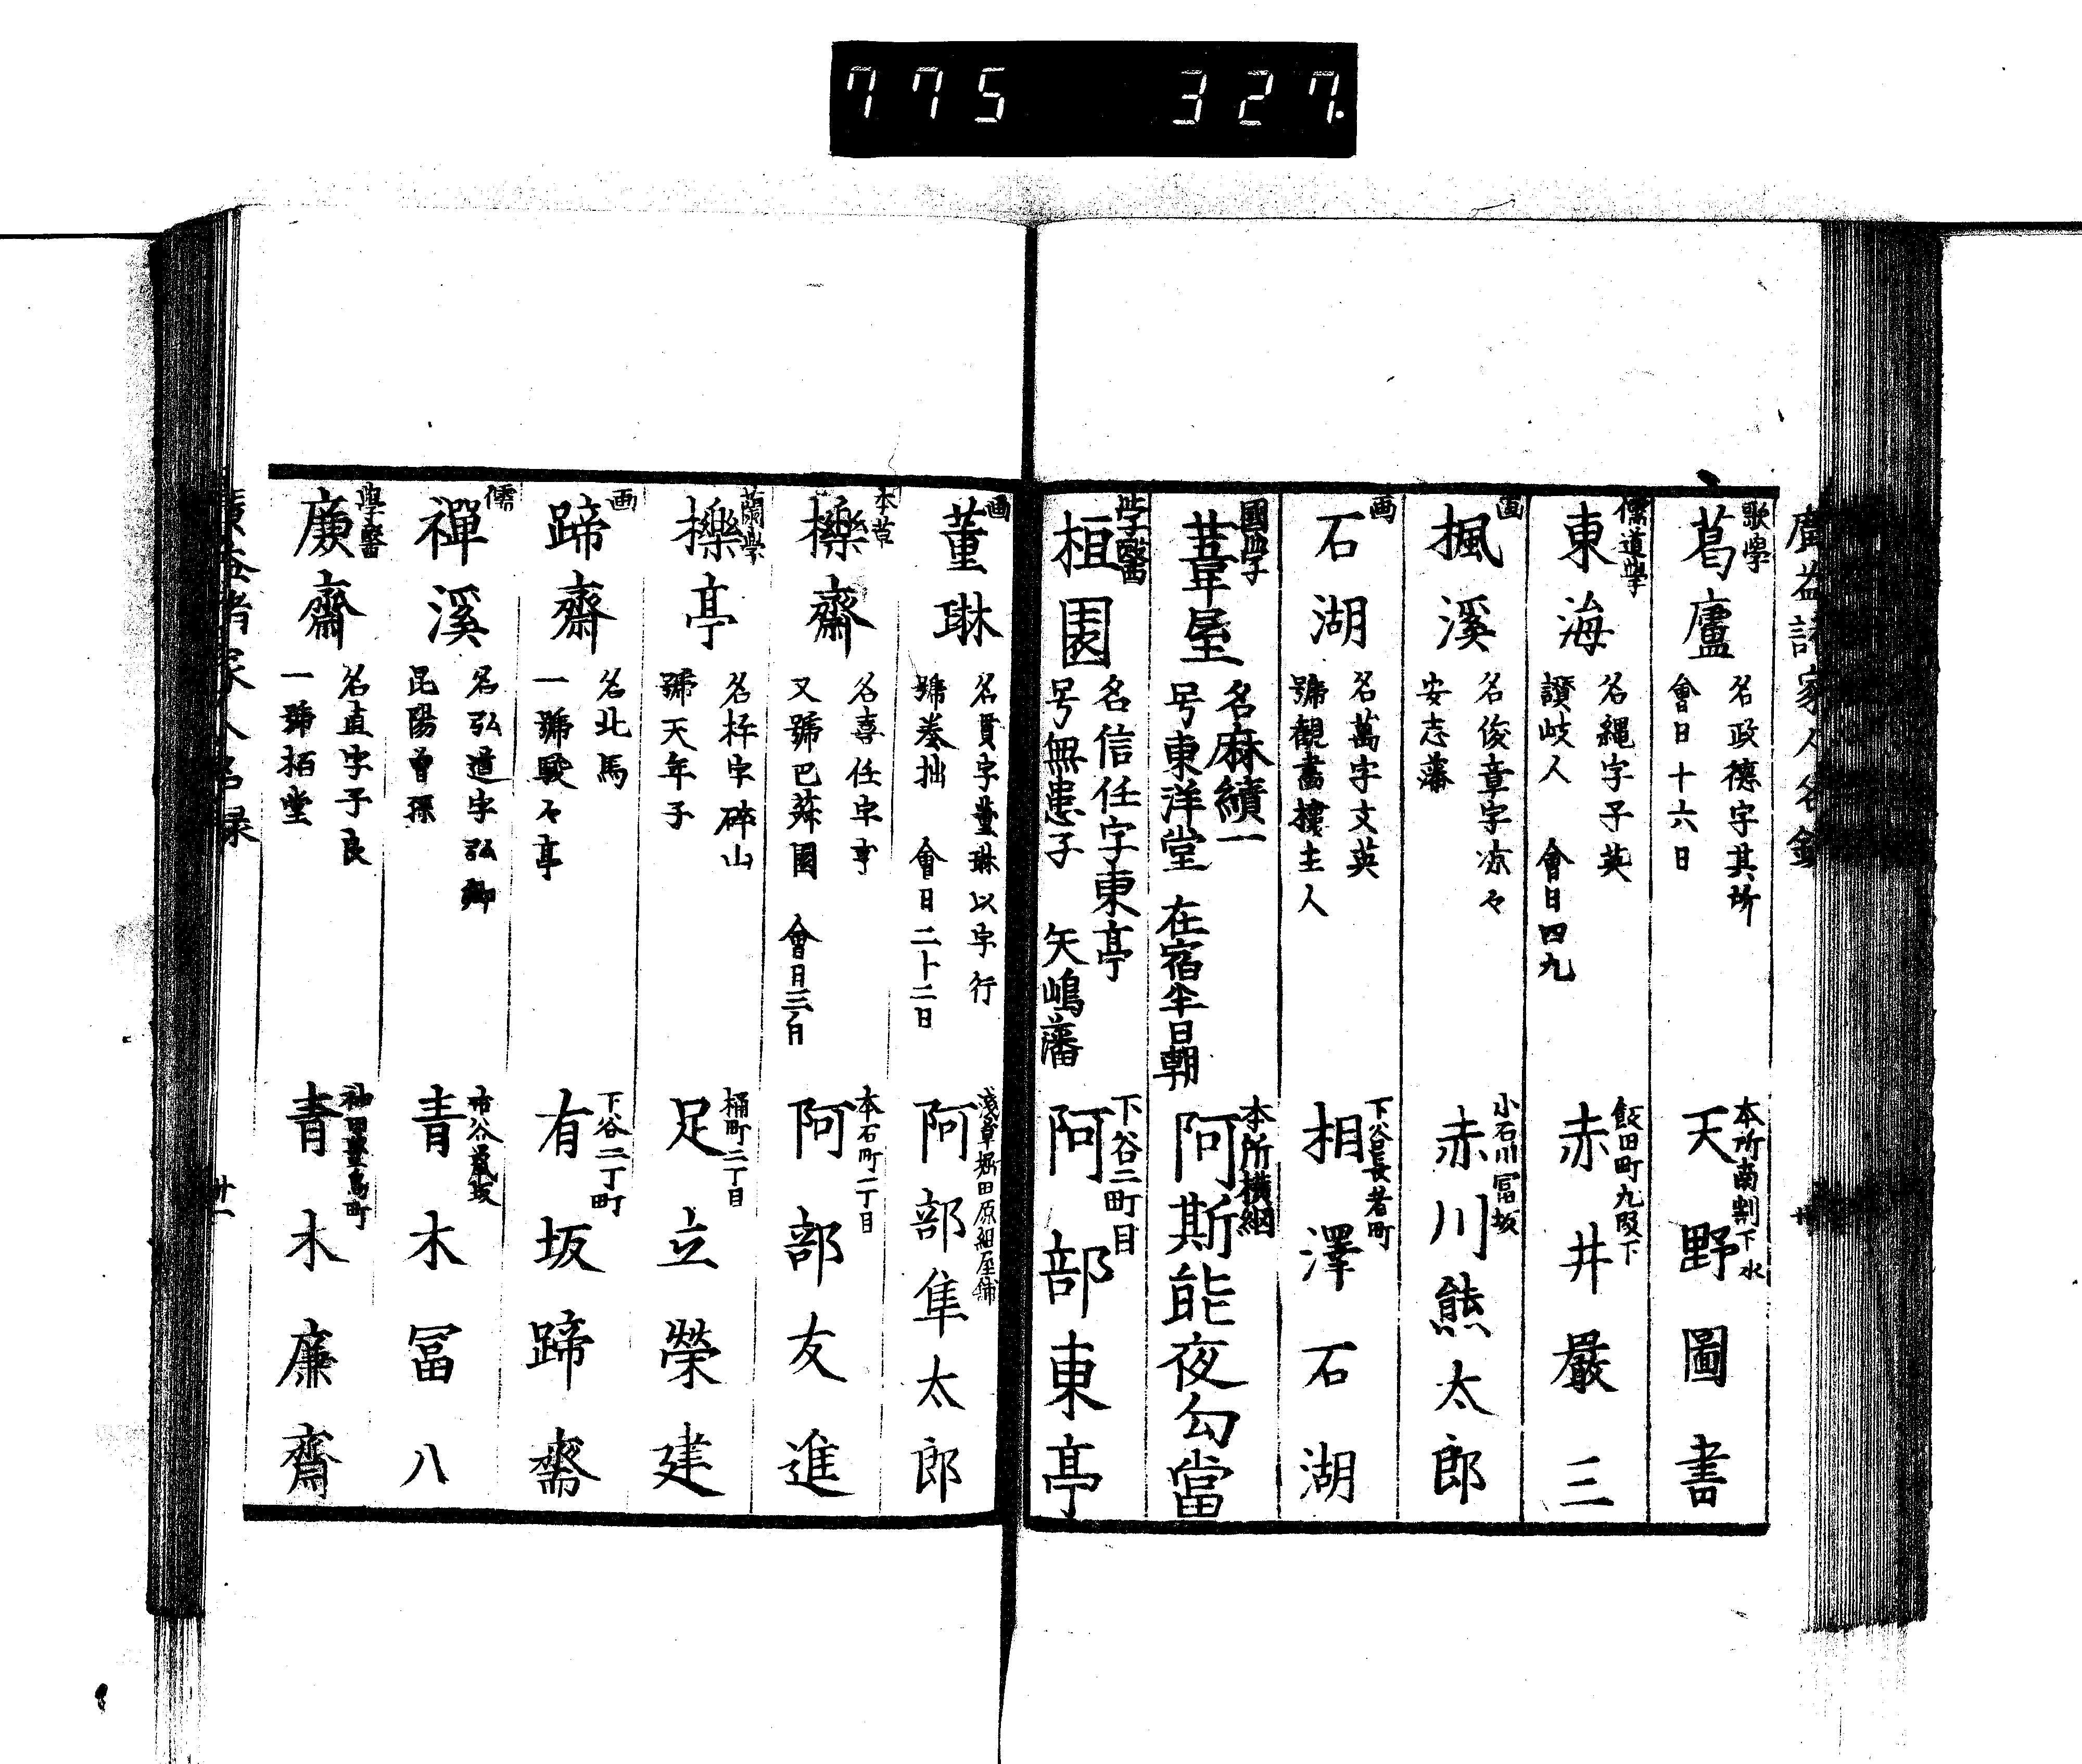 775 327.
廣益諸家人名録
歌學
葛廬
名政德字其馨
會日十六日
本所南割下水
天野圖書
儒道學
東海
名繩字子英
讃岐人 會日四九
飯田町九段下
赤井嚴三
画
楓溪
名俊章字凉々
安志藩
小石川冨坂
赤川熊太郎
画
石湖
名萬字文英
號觀畵樓主人
下谷長者町
相澤石湖
國學
葦屋
名麻績一
号東洋堂 在宿半日朝
本所横網
阿斯能夜勾當
學醫
桓園
名信任字東亭
号無患子 矢嶋藩
下谷二町目
阿部東亭
画
董琳
名貫字董琳以字行
號養拙 會日二十二日
淺草堀田原組屋鋪
阿部隼太郎
本草
櫟齋
名喜任字亨
又號巴菽園 會日三
本石町二丁目
阿部友進
蘭學
櫟亭
名梓字碎山
號天年子
桶町二丁目
足立榮建
画
蹄齋
名北馬
一號駿々亭
下谷二丁町
有坂蹄齋
儒
禪溪
名弘道字弘卿
昆陽曾孫
市谷鼠坂
青木冨八
學醫
廉齋
名直字子良
一號栢堂
神田
青木廉齋
廣益諸家人名録
廿一